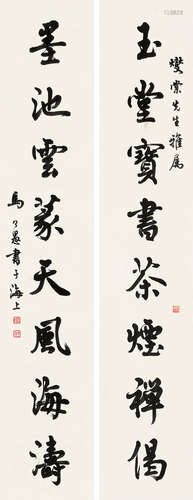 燮棠先生雅属
玉堂寶書茶煙禅偈
墨池雲篆天風海濤
馬公愚書于海上